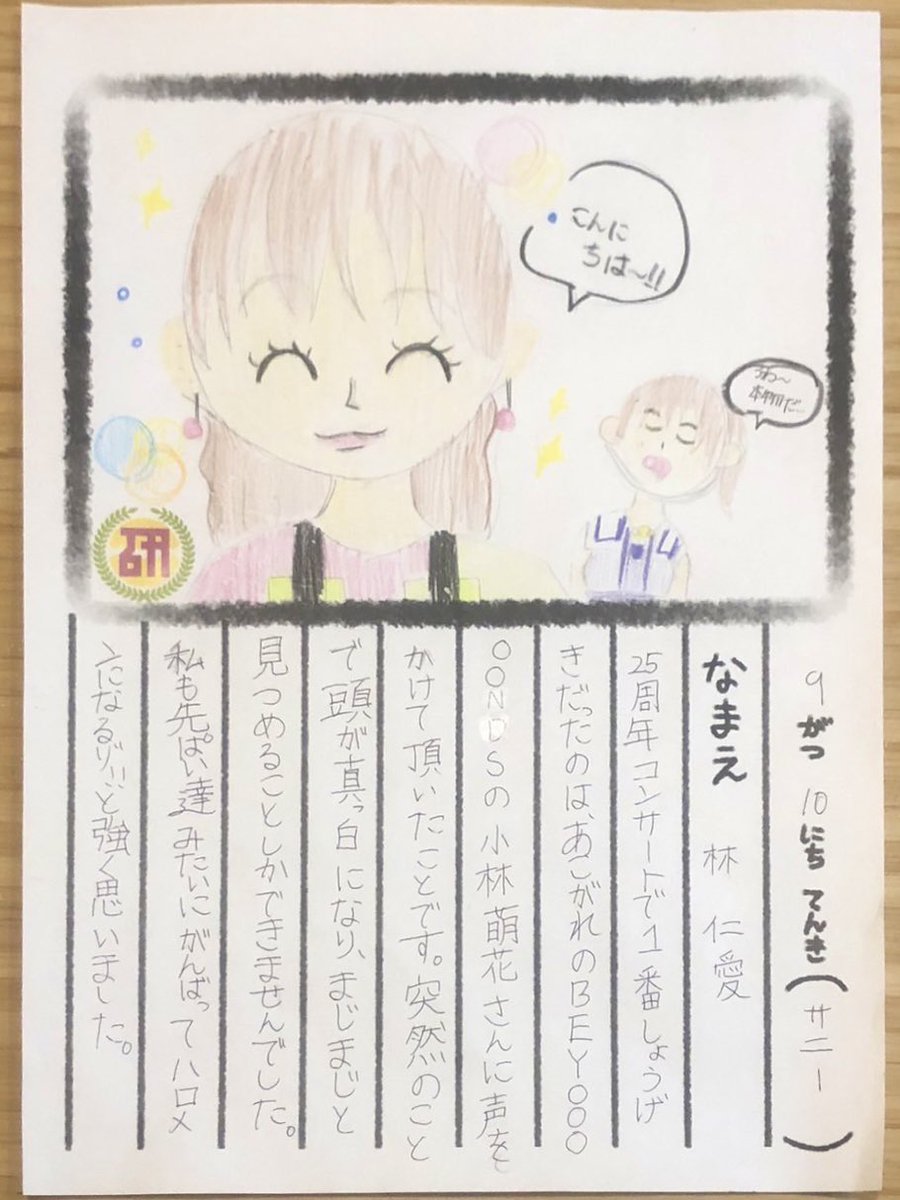 こんに
ちは〜!!
うわ〜
本物だ…
研
9がつ10にちてんき(サニー)
なまえ 林 仁愛
25周年コンサートで1番しょうげ
きだったのは、あこがれのBEYOOO
OONDSの小林萌花さんに声を
かけて頂いたことです。突然のこと
で頭が真っ白になり、まじまじと
見つめることしかできませんでした。
私も先ぱい達みたいにがんばってハロメ
ンになるゾ!!と強く思いました。